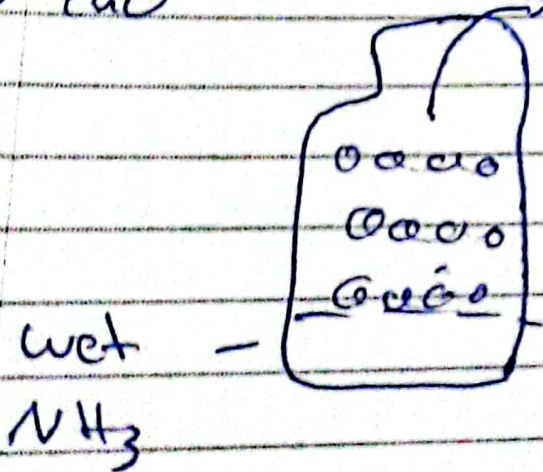 CaO
wet
NH3